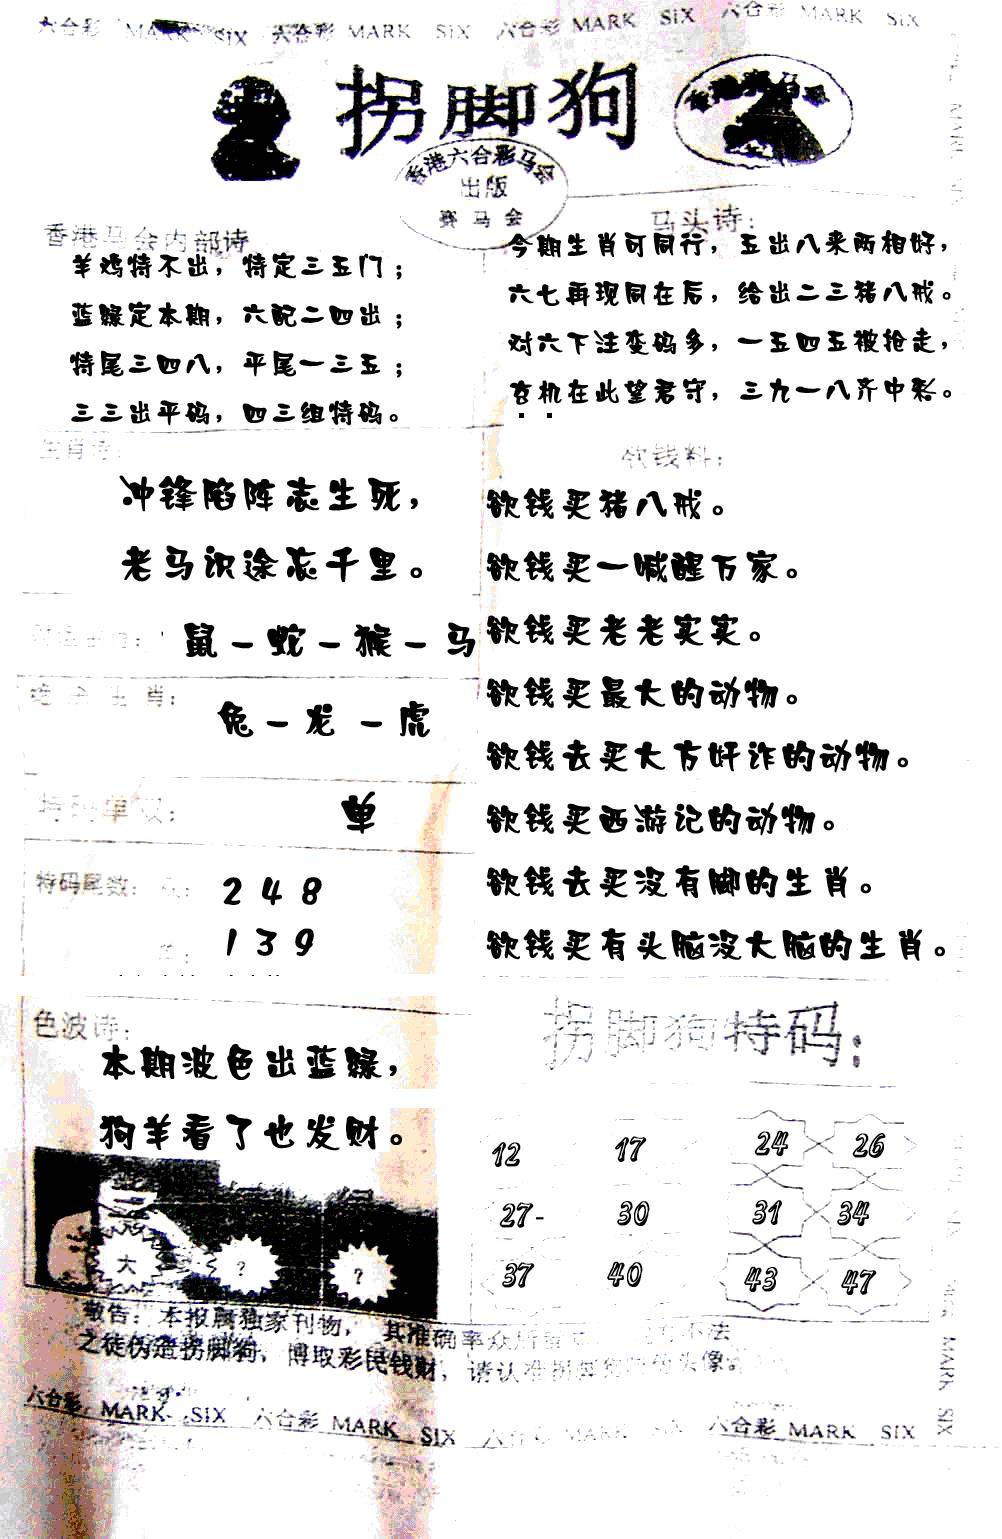 六合彩 MARK SIX 六合彩 MARK SIX 六合彩 MARK SIX 六合彩 MARK SIX
拐脚狗
香港六合彩马会
出版
赛马会
香港马会内部诗
羊鸡特不出，特定三五门；
蓝绿定本期，六配二四出；
特尾三四八，平尾一三五；
三三出平码，四三组特码。
马头诗：
今期生肖可同行，五出八来两相好，
六七再现同在后，给出二三猪八戒。
对六下注变码多，一五四五被抢走，
玄机在此望君守，三九一八齐中彩。
生肖诗：
冲锋陷阵忘生死，
老马识途忘千里。
鼠－蛇－猴－马
生肖：
兔－龙－虎
特码单双：
单
特码尾数：
2 4 8
1 3 9
欲钱料：
欲钱买猪八戒。
欲钱买一喊醒万家。
欲钱买老老实实。
欲钱买最大的动物。
欲钱去买大方奸诈的动物。
欲钱买西游记的动物。
欲钱去买没有脚的生肖。
欲钱买有头脑没大脑的生肖。
色波诗：
本期波色出蓝绿，
狗羊看了也发财。
大 ? ?
拐脚狗特码：
12 17 24 26
27- 30 31 34
37 40 43 47
敬告：本报属独家刊物，其准确率众所 不法
之徒伪造拐脚狗，博取彩民钱财，请认准拐脚 头像。
六合彩 MARK SIX 六合彩 MARK SIX 六合彩 MARK SIX 六合彩 MARK SIX
MARK SIX